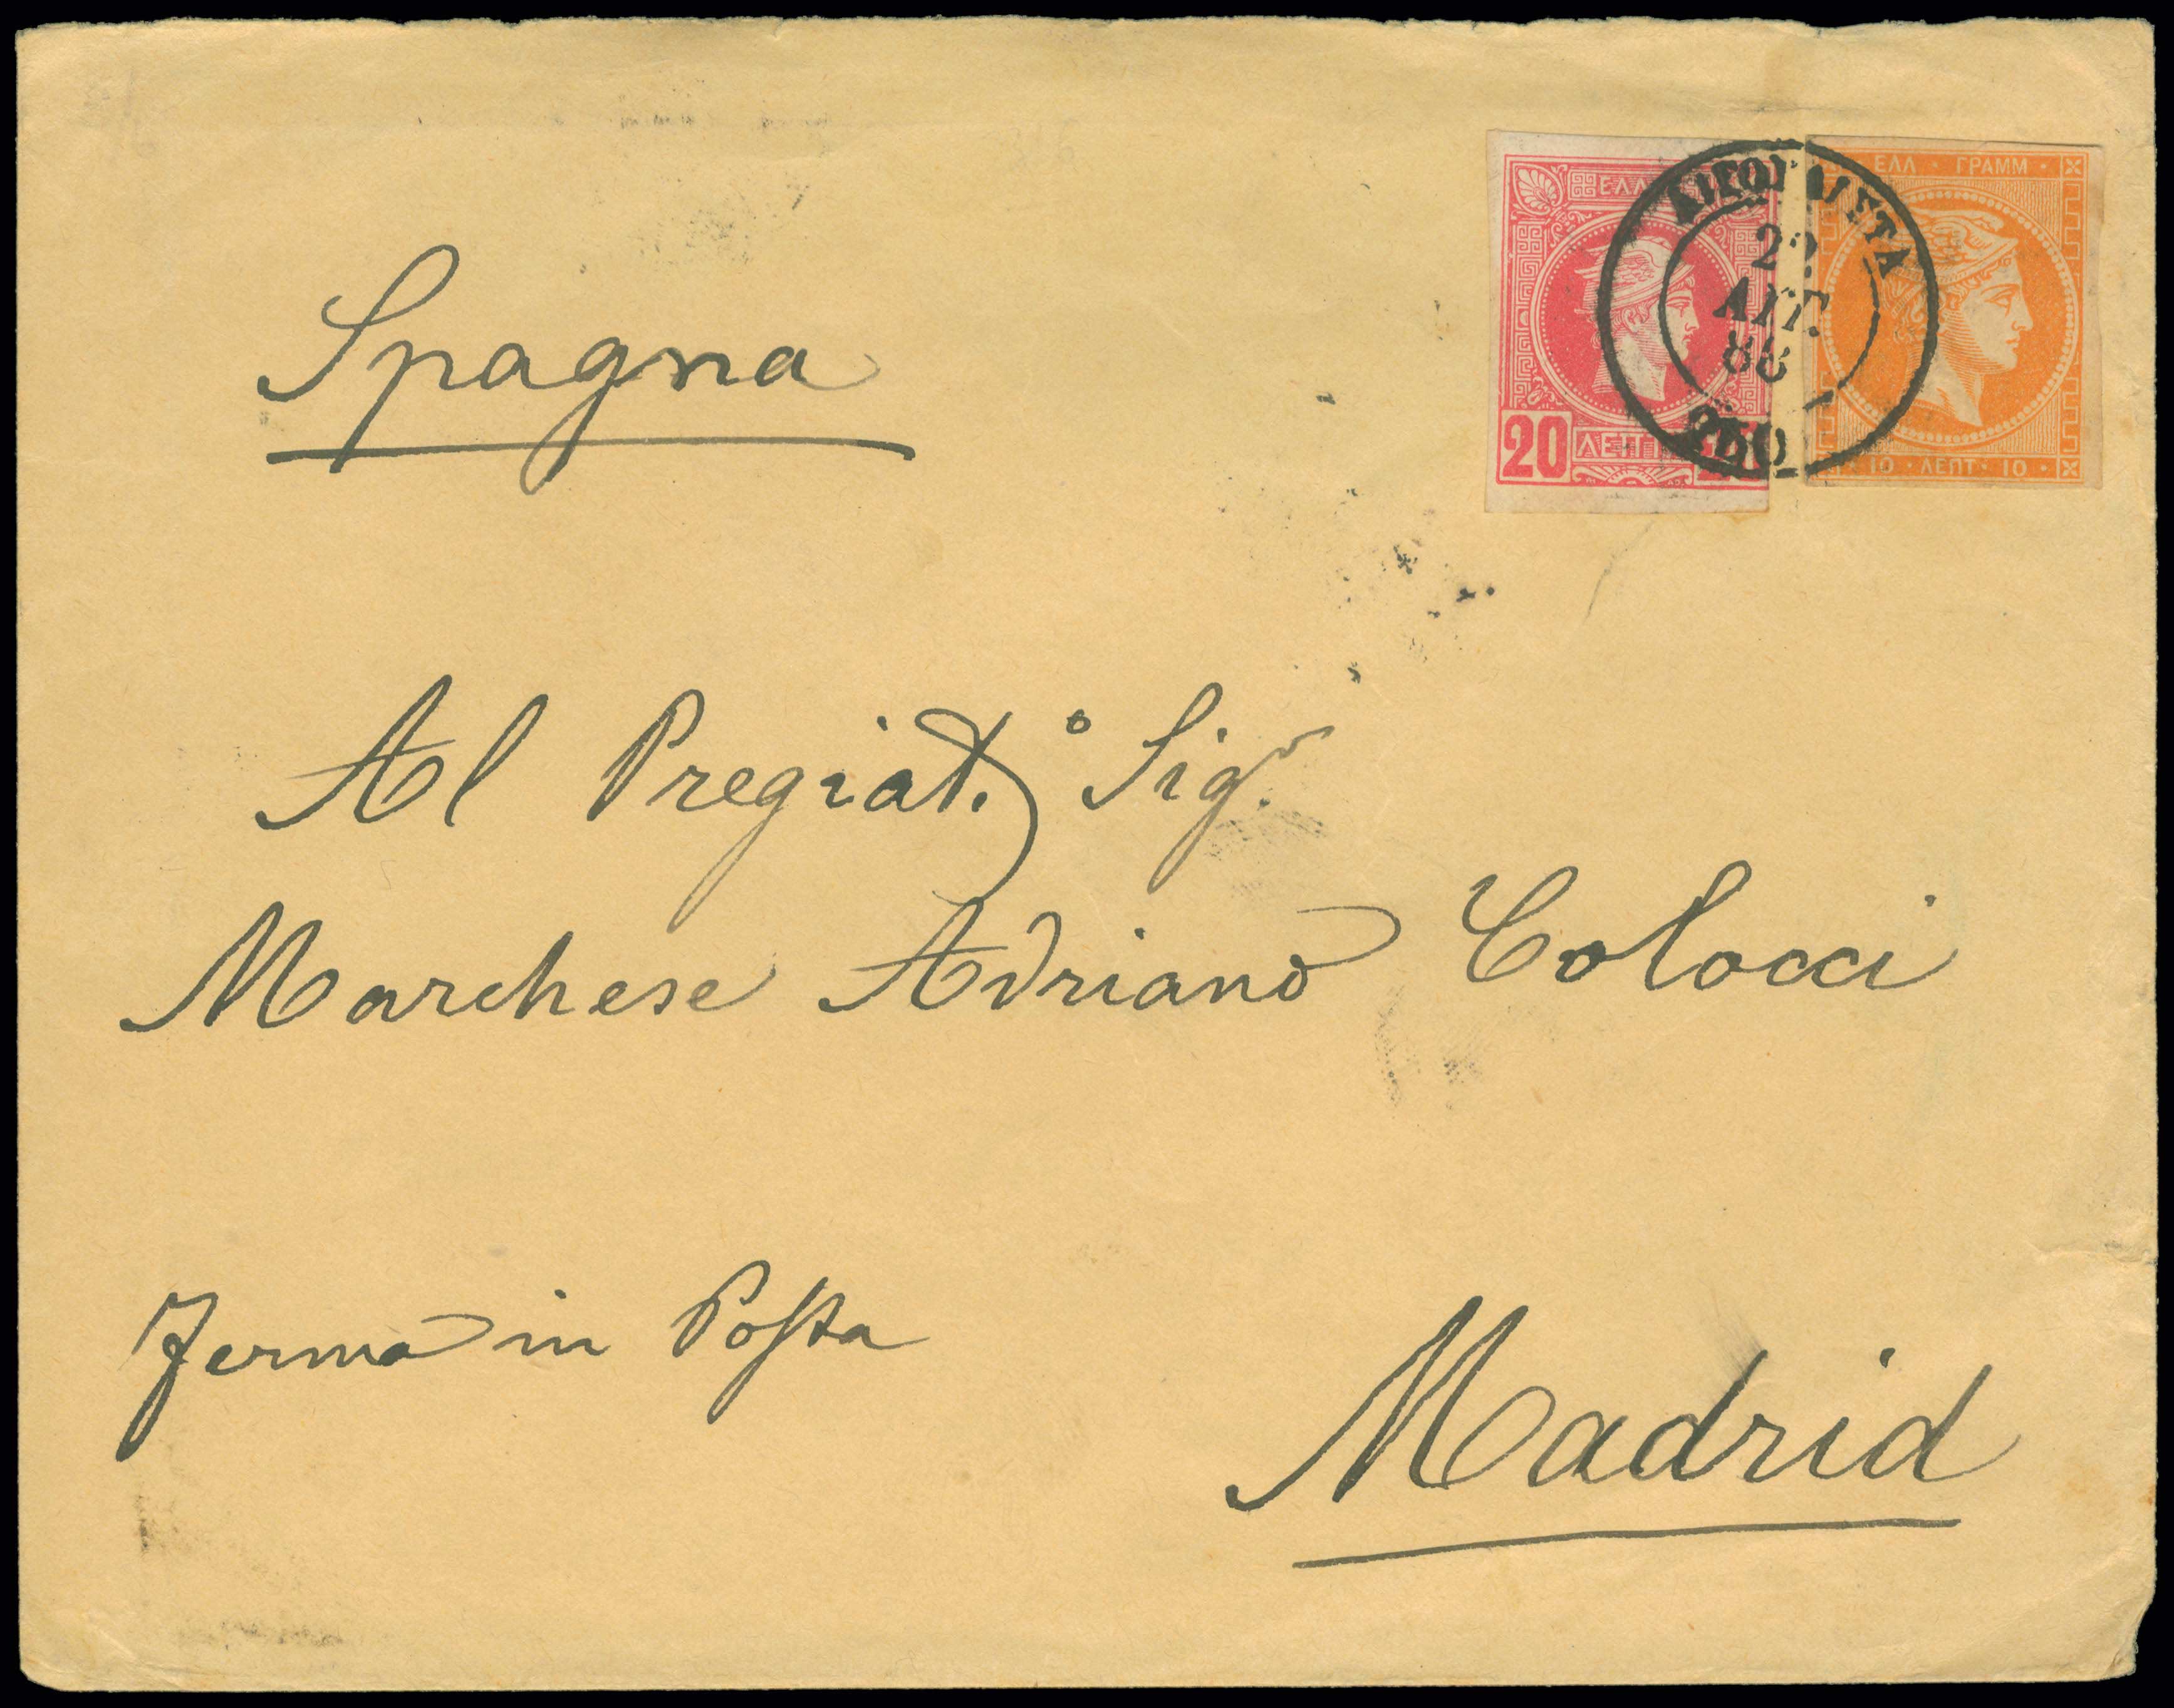 Spagna
ΕΛΛ
20 ΛΕΠΤ
ΕΛΛ · ΓΡΑΜΜ ·
10 · ΛΕΠΤ · 10 ·
ΑΥΓ.
88
250
Al Pregiat.º Sigr.
Marchese Adriano Colocci
Ferma in Posta
Madrid